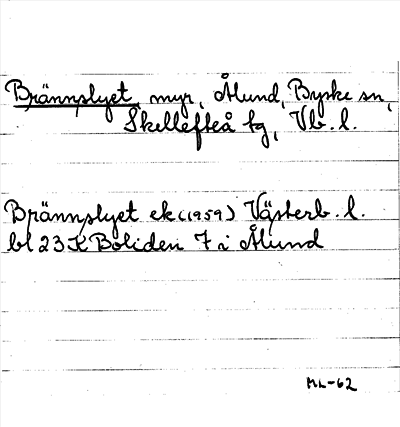 Brännslyet, myr, Ålund, Byske sn,
Skellefteå tg, Vb. l.
Brännslyet ek (1959) Västerb. l.
bl 23 K Boliden 7 i Ålund
ML-62